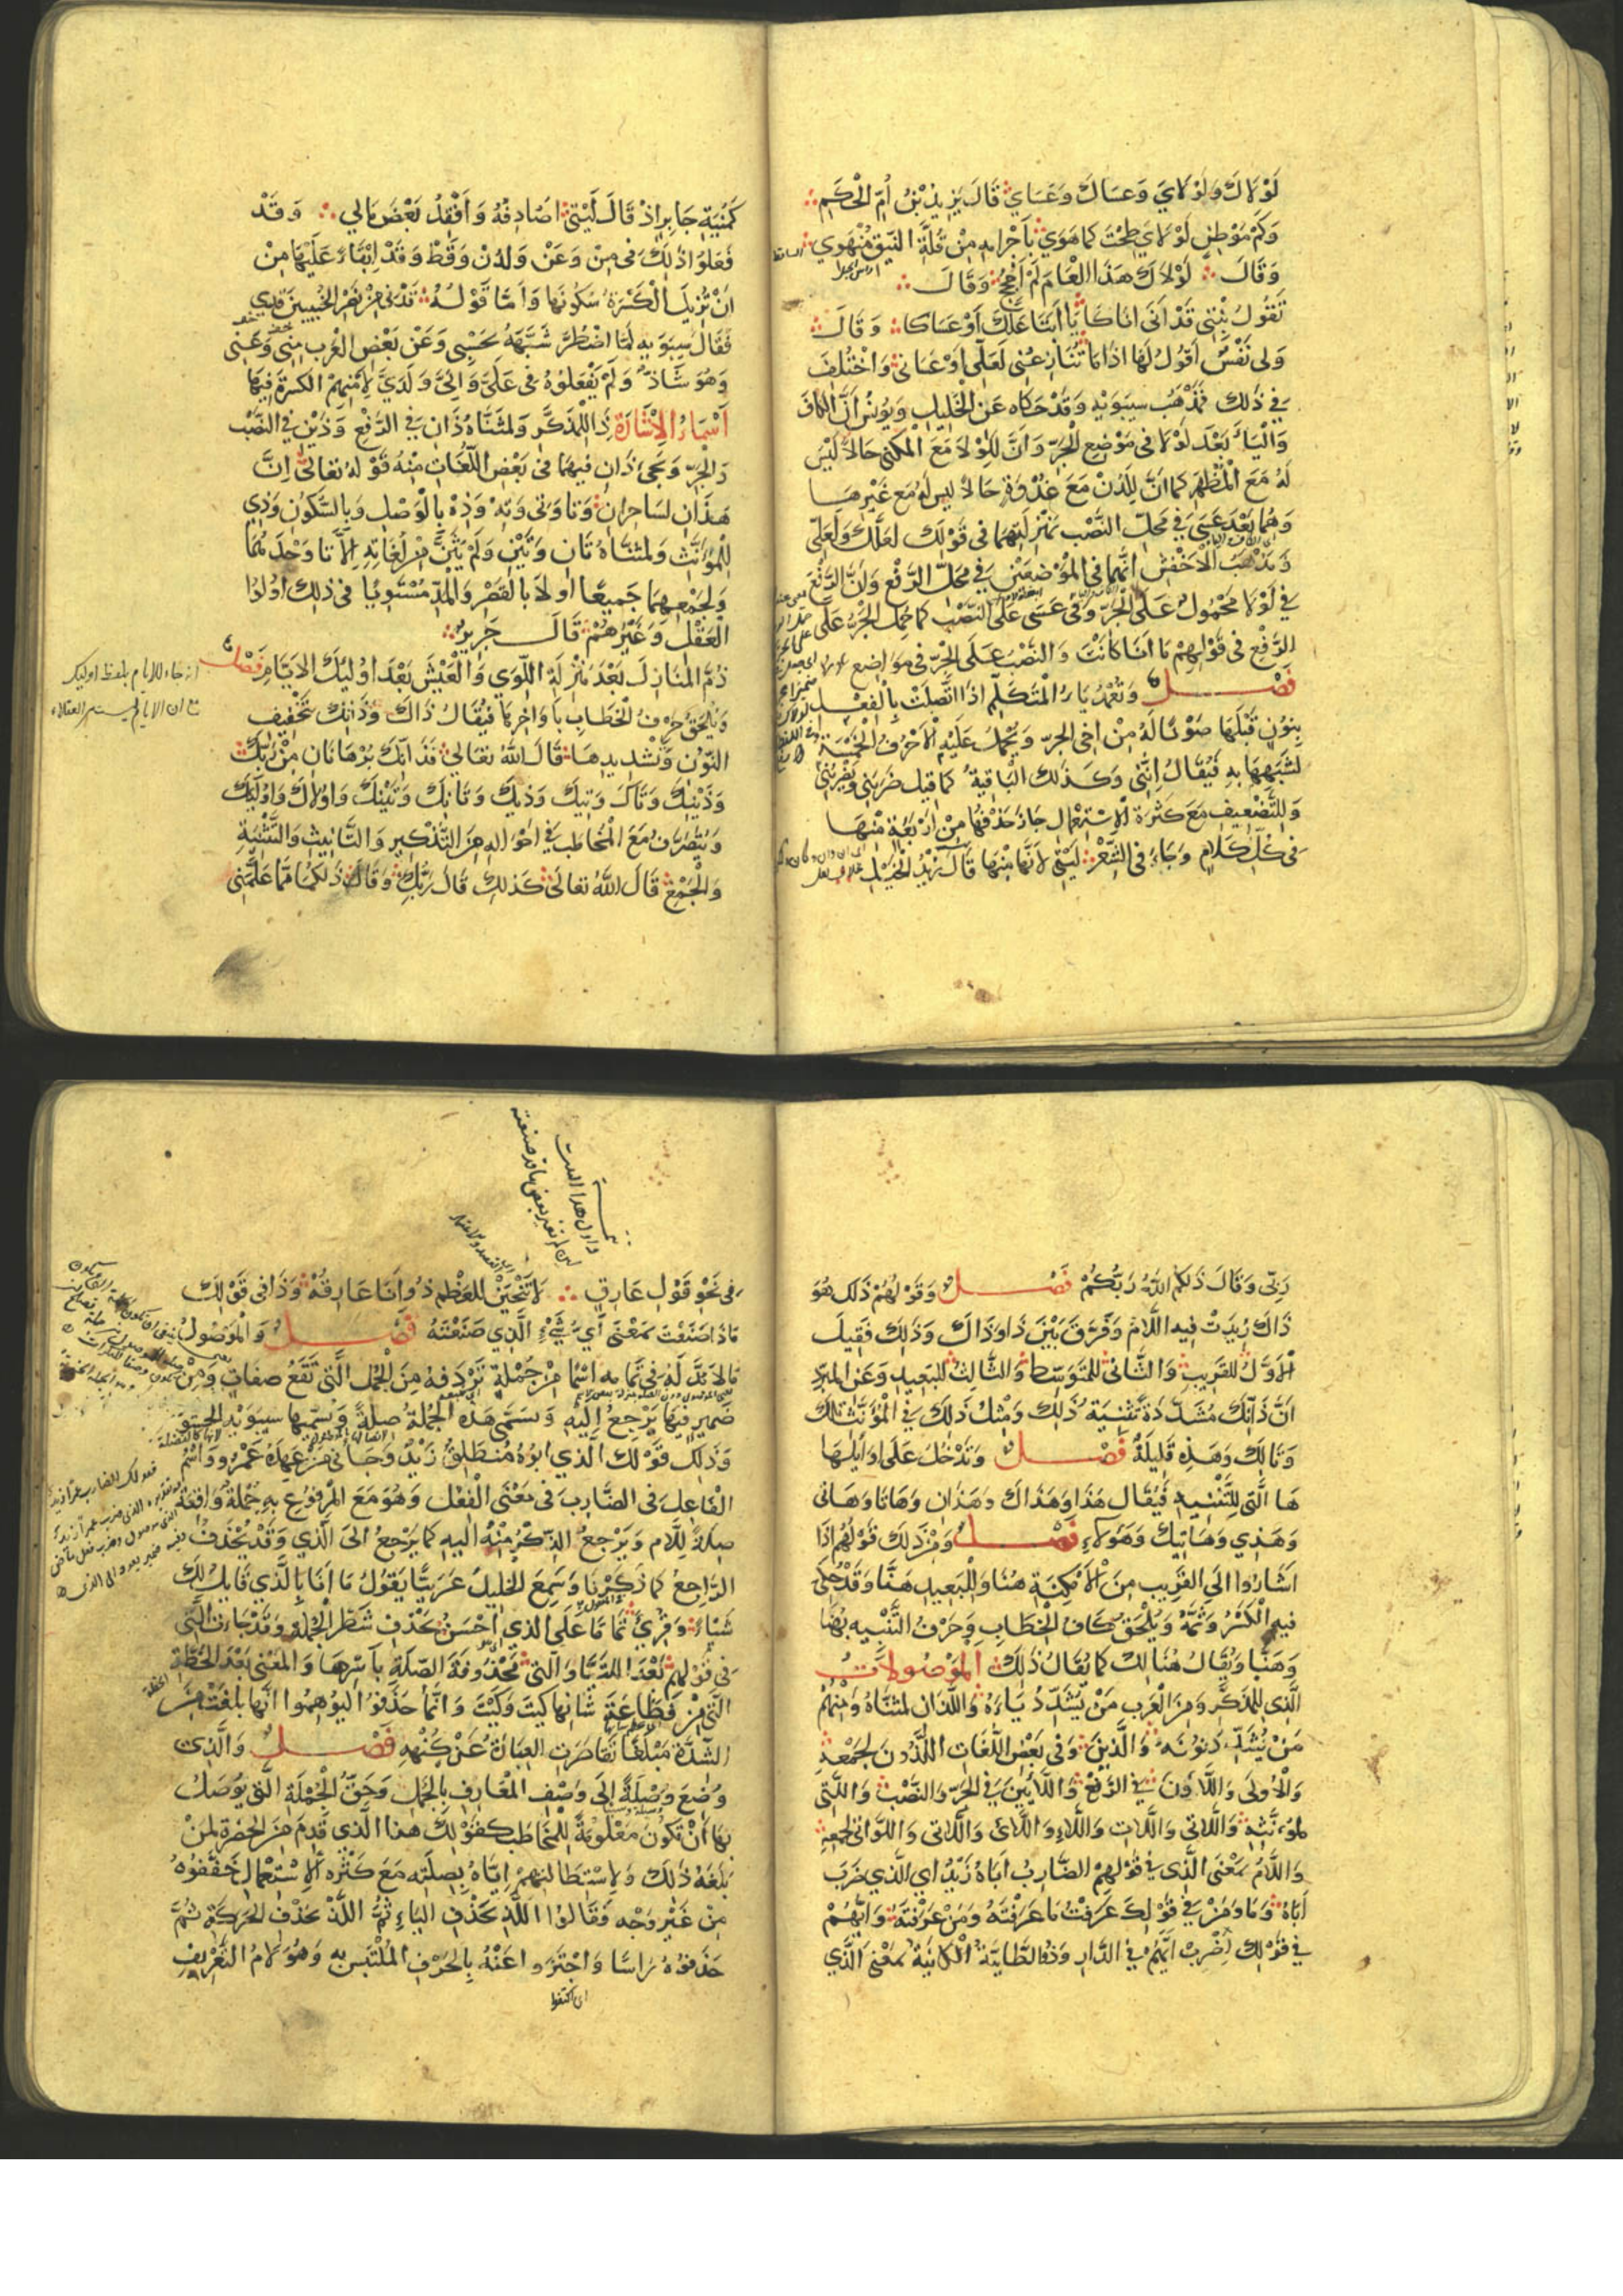 لَوْلَاكَ وَلَوْلَايَ وَعَسَاكَ وَعَسَايَ قَالَ يَزِيدُ بْنُ أُمِّ الْحَكَمِ
وَكَمْ مَوْطِنٍ لَوْلَايَ طِحْتَ كَمَا هَوَى بِأَجْرَامِهِ مِنْ قُلَّةِ النِّيقِ مُنْهَوِي
وَقَالَ لَوْلَاكَ هَذَا الْعَامَ لَمْ أَحْجُجِ وَقَالَ
تَقُولُ بِنْتِي قَدْ أَنَى أَنَاكَا يَا أَبَتَا عَلَّكَ أَوْ عَسَاكَا وَقَالَ
وَلِي نَفْسٌ أَقُولُ لَهَا إِذَا مَا تُنَازِعُنِي لَعَلِّي أَوْ عَسَانِي وَاخْتُلِفَ
فِي ذَلِكَ فَمَذْهَبُ سِيبَوَيْهِ وَقَدْ حَكَاهُ عَنِ الْخَلِيلِ وَيُونُسَ أَنَّ الْكَافَ
وَالْيَاءَ بَعْدَ لَوْلَا فِي مَوْضِعِ الْجَرِّ وَأَنَّ لِلَوْلَا مَعَ الْمَكْنِيِّ حَالًا لَيْسَ
لَهُ مَعَ الْمُظْهَرِ كَمَا أَنَّ لِلَدُنْ مَعَ غُدْوَةٍ حَالًا لَيْسَ لَهُ مَعَ غَيْرِهَا
وَهُمَا بَعْدَ عَسَى فِي مَحَلِّ النَّصْبِ بِمَنْزِلَتِهِمَا فِي قَوْلِكَ لَعَلَّكَ وَلَعَلِّي
وَمَذْهَبُ الْأَخْفَشِ أَنَّهُمَا فِي الْمَوْضِعَيْنِ فِي مَحَلِّ الرَّفْعِ وَأَنَّ الرَّفْعَ
فِي لَوْلَا مَحْمُولٌ عَلَى الْجَرِّ وَفِي عَسَى عَلَى النَّصْبِ كَمَا حُمِلَ الْجَرُّ عَلَى
الرَّفْعِ فِي قَوْلِهِمْ مَا أَنَا كَأَنْتَ وَالنَّصْبُ عَلَى الْجَرِّ فِي مَوَاضِعَ
فَصْلٌ وَتُعْمَدُ يَاءُ الْمُتَكَلِّمِ إِذَا اتَّصَلَتْ بِالْفِعْلِ
بِنُونٍ قَبْلَهَا صَوْنًا لَهُ مِنْ أَخِي الْجَرِّ وَيُحْمَلُ عَلَيْهِ الْأَحْرُفُ الْخَمْسَةُ
لِشَبَهِهَا بِهِ فَيُقَالُ إِنَّنِي وَكَذَلِكَ الْبَاقِيَةُ كَمَا قِيلَ ضَرَبَنِي وَيَضْرِبُنِي
وَلِلتَّضْعِيفِ مَعَ كَثْرَةِ الِاسْتِعْمَالِ جَازَ حَذْفُهَا مِنْ أَرْبَعَةٍ مِنْهَا
فِي كُلِّ كَلَامٍ وَجَاءَ فِي الشِّعْرِ لَيْتِي لِأَنَّهَا مِنْهَا قَالَ زَيْدُ الْخَيْلِ
كَمُنْيَةِ جَابِرٍ إِذْ قَالَ لَيْتِي أُصَادِفُهُ وَأَفْقِدُ بَعْضَ مَالِي وَقَدْ
فَعَلُوا ذَلِكَ فِي مِنْ وَعَنْ وَلَدُنْ وَقَطْ وَقَدْ إِبْقَاءً عَلَيْهَا مِنْ
أَنْ تُزِيلَ الْكَسْرَةُ سُكُونَهَا وَأَمَّا قَوْلُهُ قَدْنِي مِنْ نَصْرِ الْخُبَيْبَيْنِ قَدِي
فَقَالَ سِيبَوَيْهِ لَمَّا اضْطُرَّ شَبَّهَهُ بِحَسْبِي وَعَنْ بَعْضِ الْعَرَبِ مِنِي وَعَنِي
وَهُوَ شَاذٌّ وَلَمْ يَفْعَلُوهُ فِي عَلَيَّ وَإِلَيَّ وَلَدَيَّ لِأَمْنِهِمْ الْكَسْرَةَ فِيهَا
أَسْمَاءُ الْإِشَارَةِ ذَا لِلْمُذَكَّرِ وَلِمُثَنَّاهُ ذَانِ فِي الرَّفْعِ وَذَيْنِ فِي النَّصْبِ
وَالْجَرِّ وَيَجِيءُ ذَانِ فِيهِمَا فِي بَعْضِ اللُّغَاتِ مِنْهُ قَوْلُهُ تَعَالَى إِنَّ
هَذَانِ لَسَاحِرَانِ وَتَا وَتِي وَتِهْ وَذِهْ بِالْوَصْلِ وَبِالسُّكُونِ وَذِي
لِلْمُؤَنَّثِ وَلِمُثَنَّاهُ تَانِ وَتَيْنِ وَلَمْ يُثَنَّ مِنْ لُغَاتِهِ إِلَّا تَا وَحْدَهَا
وَلِجَمْعِهِمَا جَمِيعًا أُولَا بِالْقَصْرِ وَالْمَدِّ مُسْتَوِيًا فِي ذَلِكَ أُولُوا
الْعَقْلِ وَغَيْرُهُمْ قَالَ جَرِيرٌ
ذُمَّ الْمَنَازِلَ بَعْدَ مَنْزِلَةِ اللِّوَى وَالْعَيْشَ بَعْدَ أُولَئِكَ الْأَيَّامِ فَصْلٌ
وَيَلْحَقُ حَرْفُ الْخِطَابِ بِأَوَاخِرِهَا فَيُقَالُ ذَاكَ وَذَانِكَ بِتَخْفِيفِ
النُّونِ وَتَشْدِيدِهَا قَالَ اللَّهُ تَعَالَى فَذَانِّكَ بُرْهَانَانِ مِنْ رَبِّكَ
وَذَيْنِكَ وَتَاكَ وَتِيكَ وَذِيكَ وَتَانِكَ وَتَيْنِكَ وَأُولَاكَ وَأُولَئِكَ
وَيَتَصَرَّفُ مَعَ الْمُخَاطَبِ فِي أَحْوَالِهِ مِنَ التَّذْكِيرِ وَالتَّأْنِيثِ وَالتَّثْنِيَةِ
وَالْجَمْعِ قَالَ اللَّهُ تَعَالَى كَذَلِكِ قَالَ رَبُّكِ وَقَالَ ذَلِكُمَا مِمَّا عَلَّمَنِي
رَبِّي وَقَالَ ذَلِكُمُ اللَّهُ رَبُّكُمْ فَصْلٌ وَقَوْلُهُمْ ذَلِكَ هُوَ
ذَاكَ زِيدَتْ فِيهِ اللَّامُ وَفُرِّقَ بَيْنَ ذَا وَذَاكَ وَذَلِكَ فَقِيلَ
الْأَوَّلُ لِلْقَرِيبِ وَالثَّانِي لِلْمُتَوَسِّطِ وَالثَّالِثُ لِلْبَعِيدِ وَعَنِ الْمُبَرِّدِ
أَنَّ ذَانِّكَ مُشَدَّدَةً تَثْنِيَةُ ذَلِكَ وَمِثْلُ ذَلِكَ فِي الْمُؤَنَّثِ تَالِكَ
وَتَالِكَ وَهَذِهِ قَلِيلَةٌ فَصْلٌ وَتَدْخُلُ عَلَى أَوَائِلِهَا
هَا الَّتِي لِلتَّنْبِيهِ فَيُقَالُ هَذَا وَهَذَاكَ وَهَذَانِ وَهَاتَا وَهَاتِي
وَهَذِي وَهَاتِيكَ وَهَؤُلَاءِ فَصْلٌ وَمِنْ ذَلِكَ قَوْلُهُمْ إِذَا
أَشَارُوا إِلَى الْقَرِيبِ مِنَ الْأَمْكِنَةِ هُنَا وَلِلْبَعِيدِ هَنَّا وَقَدْ حُكِيَ
فِيهِ الْكَسْرُ وَثَمَّ وَيُلْحَقُ كَافُ الْخِطَابِ وَحَرْفُ التَّنْبِيهِ بِهُنَا
وَهَنَّا وَيُقَالُ هُنَالِكَ كَمَا يُقَالُ ذَلِكَ الْمَوْصُولَاتُ
الَّذِي لِلْمُذَكَّرِ وَمِنَ الْعَرَبِ مَنْ يُشَدِّدُ يَاءَهُ وَاللَّذَانِ لِمُثَنَّاهُ وَمِنْهُمْ
مَنْ يُشَدِّدُ نُونَهُ وَالَّذِينَ وَفِي بَعْضِ اللُّغَاتِ اللَّذُونَ لِجَمْعِهِ
وَالْأُولَى وَاللَّاؤُنَ فِي الرَّفْعِ وَاللَّائِينَ فِي الْجَرِّ وَالنَّصْبِ وَالَّتِي
لِمُؤَنَّثِهِ وَاللَّاتِي وَاللَّاتِ وَاللَّاءِ وَاللَّائِ وَاللَّاتِي وَاللَّوَاتِي لِجَمْعِهِ
وَاللَّامُ بِمَعْنَى الَّذِي فِي قَوْلِهِمْ الضَّارِبُ أَبَاهُ زَيْدٌ أَيِ الَّذِي ضَرَبَ
أَبَاهُ وَمَا وَمَنْ فِي قَوْلِكَ عَرَفْتُ مَا عَرَفْتَهُ وَمَنْ عَرَفْتَهُ وَأَيُّهُمْ
فِي قَوْلِكَ اضْرِبْ أَيَّهُمْ فِي الدَّارِ وَذُو الطَّائِيَّةُ الْكَائِنَةُ بِمَعْنَى الَّذِي
فِي نَحْوِ قَوْلِ عَارِقٍ لَأَنْتَحِيَنْ لِلْعَظْمِ ذُو أَنَا عَارِقُهْ وَذَا فِي قَوْلِكَ
مَاذَا صَنَعْتَ بِمَعْنَى أَيُّ شَيْءٍ الَّذِي صَنَعْتَهُ فَصْلٌ وَالْمَوْصُولُ
مَا لَا بُدَّ لَهُ فِي تَمَامِهِ اسْمًا مِنْ جُمْلَةٍ تَرْدَفُهُ مِنَ الْجُمَلِ الَّتِي تَقَعُ صِفَاتٍ وَمِنْ
ضَمِيرٍ فِيهَا يَرْجِعُ إِلَيْهِ وَتُسَمَّى هَذِهِ الْجُمْلَةُ صِلَةً وَيُسَمِّيهَا سِيبَوَيْهِ الْحَشْوَ
وَذَلِكَ قَوْلُكَ الَّذِي أَبُوهُ مُنْطَلِقٌ زَيْدٌ وَجَاءَنِي مَنْ عَهْدُهُ عَمْرٌو وَاسْمُ
الْفَاعِلِ فِي الضَّارِبِ فِي مَعْنَى الْفِعْلِ وَهُوَ مَعَ الْمَرْفُوعِ بِهِ جُمْلَةٌ وَاقِعَةٌ
صِلَةً لِلَّامِ وَيَرْجِعُ الذِّكْرُ مِنْهُ إِلَيْهِ كَمَا يَرْجِعُ إِلَى الَّذِي وَقَدْ يُحْذَفُ
الرَّاجِعُ كَمَا ذَكَرْنَا وَسَمِعَ الْخَلِيلُ عَرَبِيًّا يَقُولُ مَا أَنَا بِالَّذِي قَائِلٌ لَكَ
شَيْئًا وَقُرِئَ تَمَامًا عَلَى الَّذِي أَحْسَنُ بِحَذْفِ شَطْرِ الْجُمْلَةِ وَقَدْ جَاءَتِ الَّتِي
فِي قَوْلِهِمْ بَعْدَ اللَّتَيَّا وَالَّتِي مَحْذُوفَةَ الصِّلَةِ بِأَسْرِهَا وَالْمَعْنَى بَعْدَ الْخُطَّةِ
الَّتِي مِنْ فَظَاعَةِ شَأْنِهَا كَيْتَ وَكَيْتَ وَإِنَّمَا حَذَفُوا لِيُوهِمُوا أَنَّهَا بَلَغَتْ مِنَ
الشِّدَّةِ مَبْلَغًا تَقَاصَرَتِ الْعِبَارَةُ عَنْ كُنْهِهِ فَصْلٌ وَالَّذِي
وُضِعَ وُصْلَةً إِلَى وَصْفِ الْمَعَارِفِ بِالْجُمَلِ وَحَقُّ الْجُمْلَةِ الَّتِي يُوصَلُ
بِهَا أَنْ تَكُونَ مَعْلُومَةً لِلْمُخَاطَبِ كَقَوْلِكَ هَذَا الَّذِي قَدِمَ مِنَ الْحَضْرَةِ لِمَنْ
بَلَغَهُ ذَلِكَ وَلِاسْتِطَالَتِهِمْ إِيَّاهُ بِصِلَتِهِ مَعَ كَثْرَةِ الِاسْتِعْمَالِ خَفَّفُوهُ
مِنْ غَيْرِ وَجْهٍ فَقَالُوا اللَّذِ بِحَذْفِ الْيَاءِ ثُمَّ اللَّذْ بِحَذْفِ الْحَرَكَةِ ثُمَّ
حَذَفُوهُ رَأْسًا وَاجْتَزَءُوا عَنْهُ بِالْحَرْفِ الْمُلْتَبِسِ بِهِ وَهُوَ لَامُ التَّعْرِيفِ
اى اكتفوا